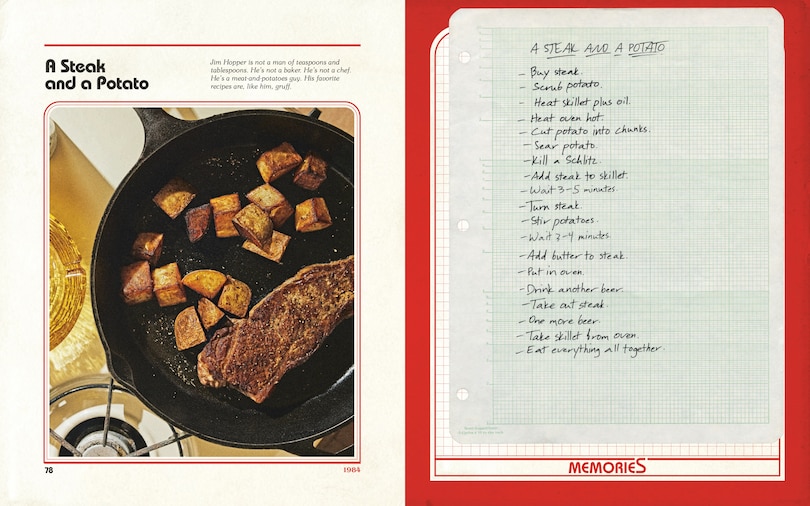 A Steak
and a Potato
Jim Hopper is not a man of teaspoons and
tablespoons. He's not a baker. He's not a chef.
He's a meat-and-potatoes guy. His favorite
recipes are, like him, gruff.
78
1984
A STEAK AND A POTATO
– Buy steak.
– Scrub potato.
– Heat skillet plus oil.
– Heat oven hot.
– Cut potato into chunks.
– Sear potato.
– Kill a Schlitz.
– Add steak to skillet.
– Wait 3–5 minutes.
– Turn steak.
– Stir potatoes.
– Wait 3–4 minutes.
– Add butter to steak.
– Put in oven.
– Drink another beer.
– Take out steak.
– One more beer.
– Take skillet from oven.
– Eat everything all together.
MEMORIES